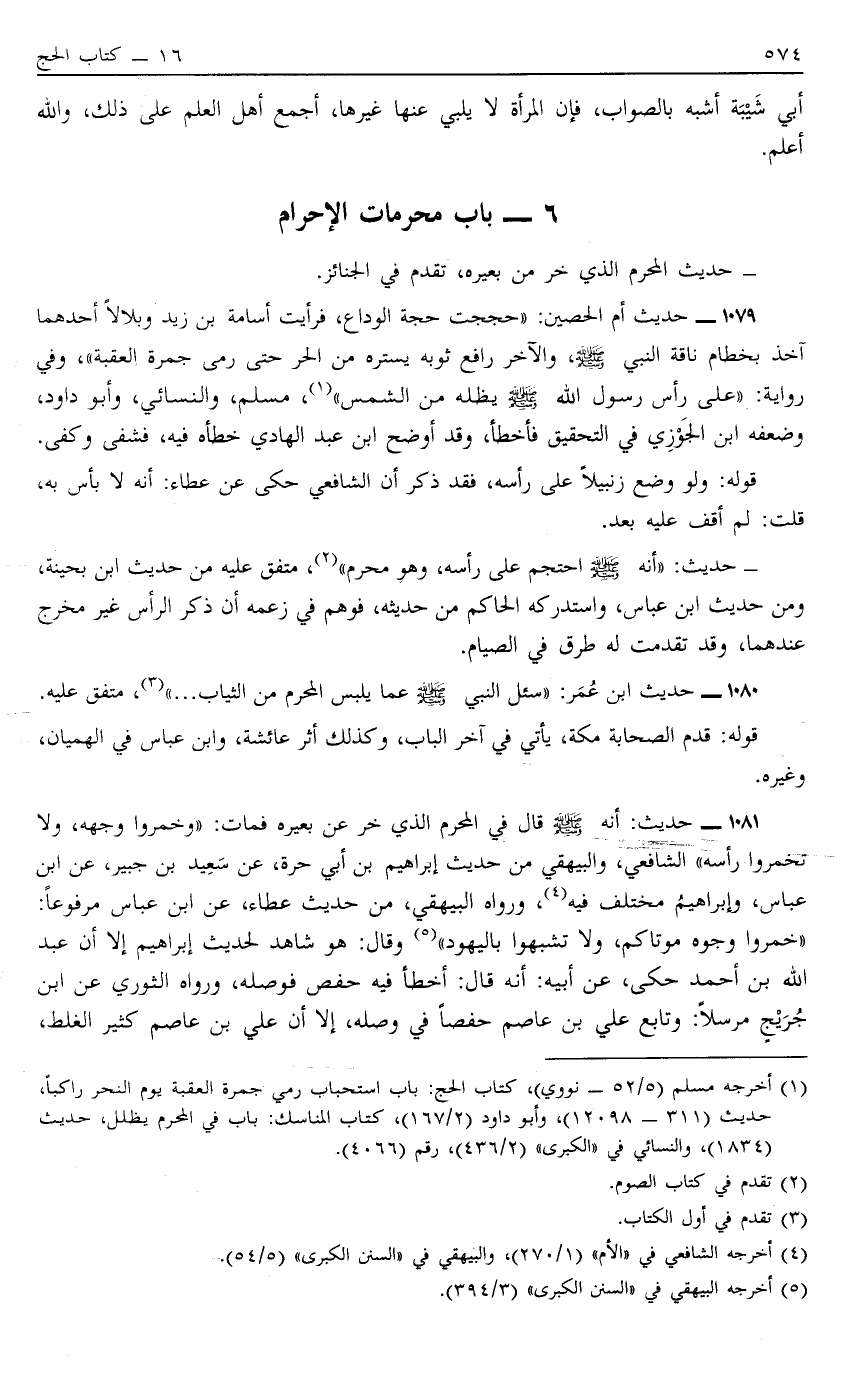 ٥٧٤
١٦ ــ كتاب الحج
أبي شَيْبَة أشبه بالصواب، فإن المرأة لا يلبي عنها غيرها، أجمع أهل العلم على ذلك، والله
أعلم.
٦ ــ باب محرمات الإحرام
ــ حديث المحرم الذي خر من بعيره، تقدم في الجنائز.
١٠٧٩ ــ حديث أم الحصين: «حججت حجة الوداع، فرأيت أسامة بن زيد وبلالاً أحدهما
آخذ بخطام ناقة النبي ﷺ، والآخر رافع ثوبه يستره من الحر حتى رمى جمرة العقبة»، وفي
رواية: «على رأس رسول الله ﷺ يظله من الشمس»(١)، مسلم، والنسائي، وأبو داود،
وضعفه ابن الجَوْزِي في التحقيق فأخطأ، وقد أوضح ابن عبد الهادي خطأه فيه، فشفى وكفى.
قوله: ولو وضع زنبيلاً على رأسه، فقد ذكر أن الشافعي حكى عن عطاء: أنه لا بأس به،
قلت: لم أقف عليه بعد.
ــ حديث: «أنه ﷺ احتجم على رأسه، وهو محرم»(٢)، متفق عليه من حديث ابن بحينة،
ومن حديث ابن عباس، واستدركه الحاكم من حديثه، فوهم في زعمه أن ذكر الرأس غير مخرج
عندهما، وقد تقدمت له طرق في الصيام.
١٠٨٠ ــ حديث ابن عُمَر: «سئل النبي ﷺ عما يلبس المحرم من الثياب...»(٣)، متفق عليه.
قوله: قدم الصحابة مكة، يأتي في آخر الباب، وكذلك أثر عائشة، وابن عباس في الهميان،
وغيره.
١٠٨١ ــ حديث: أنه ﷺ قال في المحرم الذي خر عن بعيره فمات: «وخمروا وجهه، ولا
تخمروا رأسه» الشافعي، والبيهقي من حديث إبراهيم بن أبي حرة، عن سَعِيد بن جبير، عن ابن
عباس، وإبراهيمُ مختلف فيه(٤)، ورواه البيهقي، من حديث عطاء، عن ابن عباس مرفوعاً:
«خمروا وجوه موتاكم، ولا تشبهوا باليهود»(٥) وقال: هو شاهد لحديث إبراهيم إلا أن عبد
الله بن أحمد حكى، عن أبيه: أنه قال: أخطأ فيه حفص فوصله، ورواه الثوري عن ابن
جُرَيْجٍ مرسلاً: وتابع علي بن عاصم حفصاً في وصله، إلا أن علي بن عاصم كثير الغلط،
(١) أخرجه مسلم (٥٢/٥ ــ نووي)، كتاب الحج: باب استحباب رمي جمرة العقبة يوم النحر راكباً،
حديث (٣١١ ــ ١٢٠٩٨)، وأبو داود (١٦٧/٢)، كتاب المناسك: باب في المحرم يظلل، حديث
(١٨٣٤)، والنسائي في «الكبرى» (٤٣٦/٢)، رقم (٤٠٦٦).
(٢) تقدم في كتاب الصوم.
(٣) تقدم في أول الكتاب.
(٤) أخرجه الشافعي في «الأم» (٢٧٠/١)، والبيهقي في «السنن الكبرى» (٥٤/٥).
(٥) أخرجه البيهقي في «السنن الكبرى» (٣٩٤/٣).